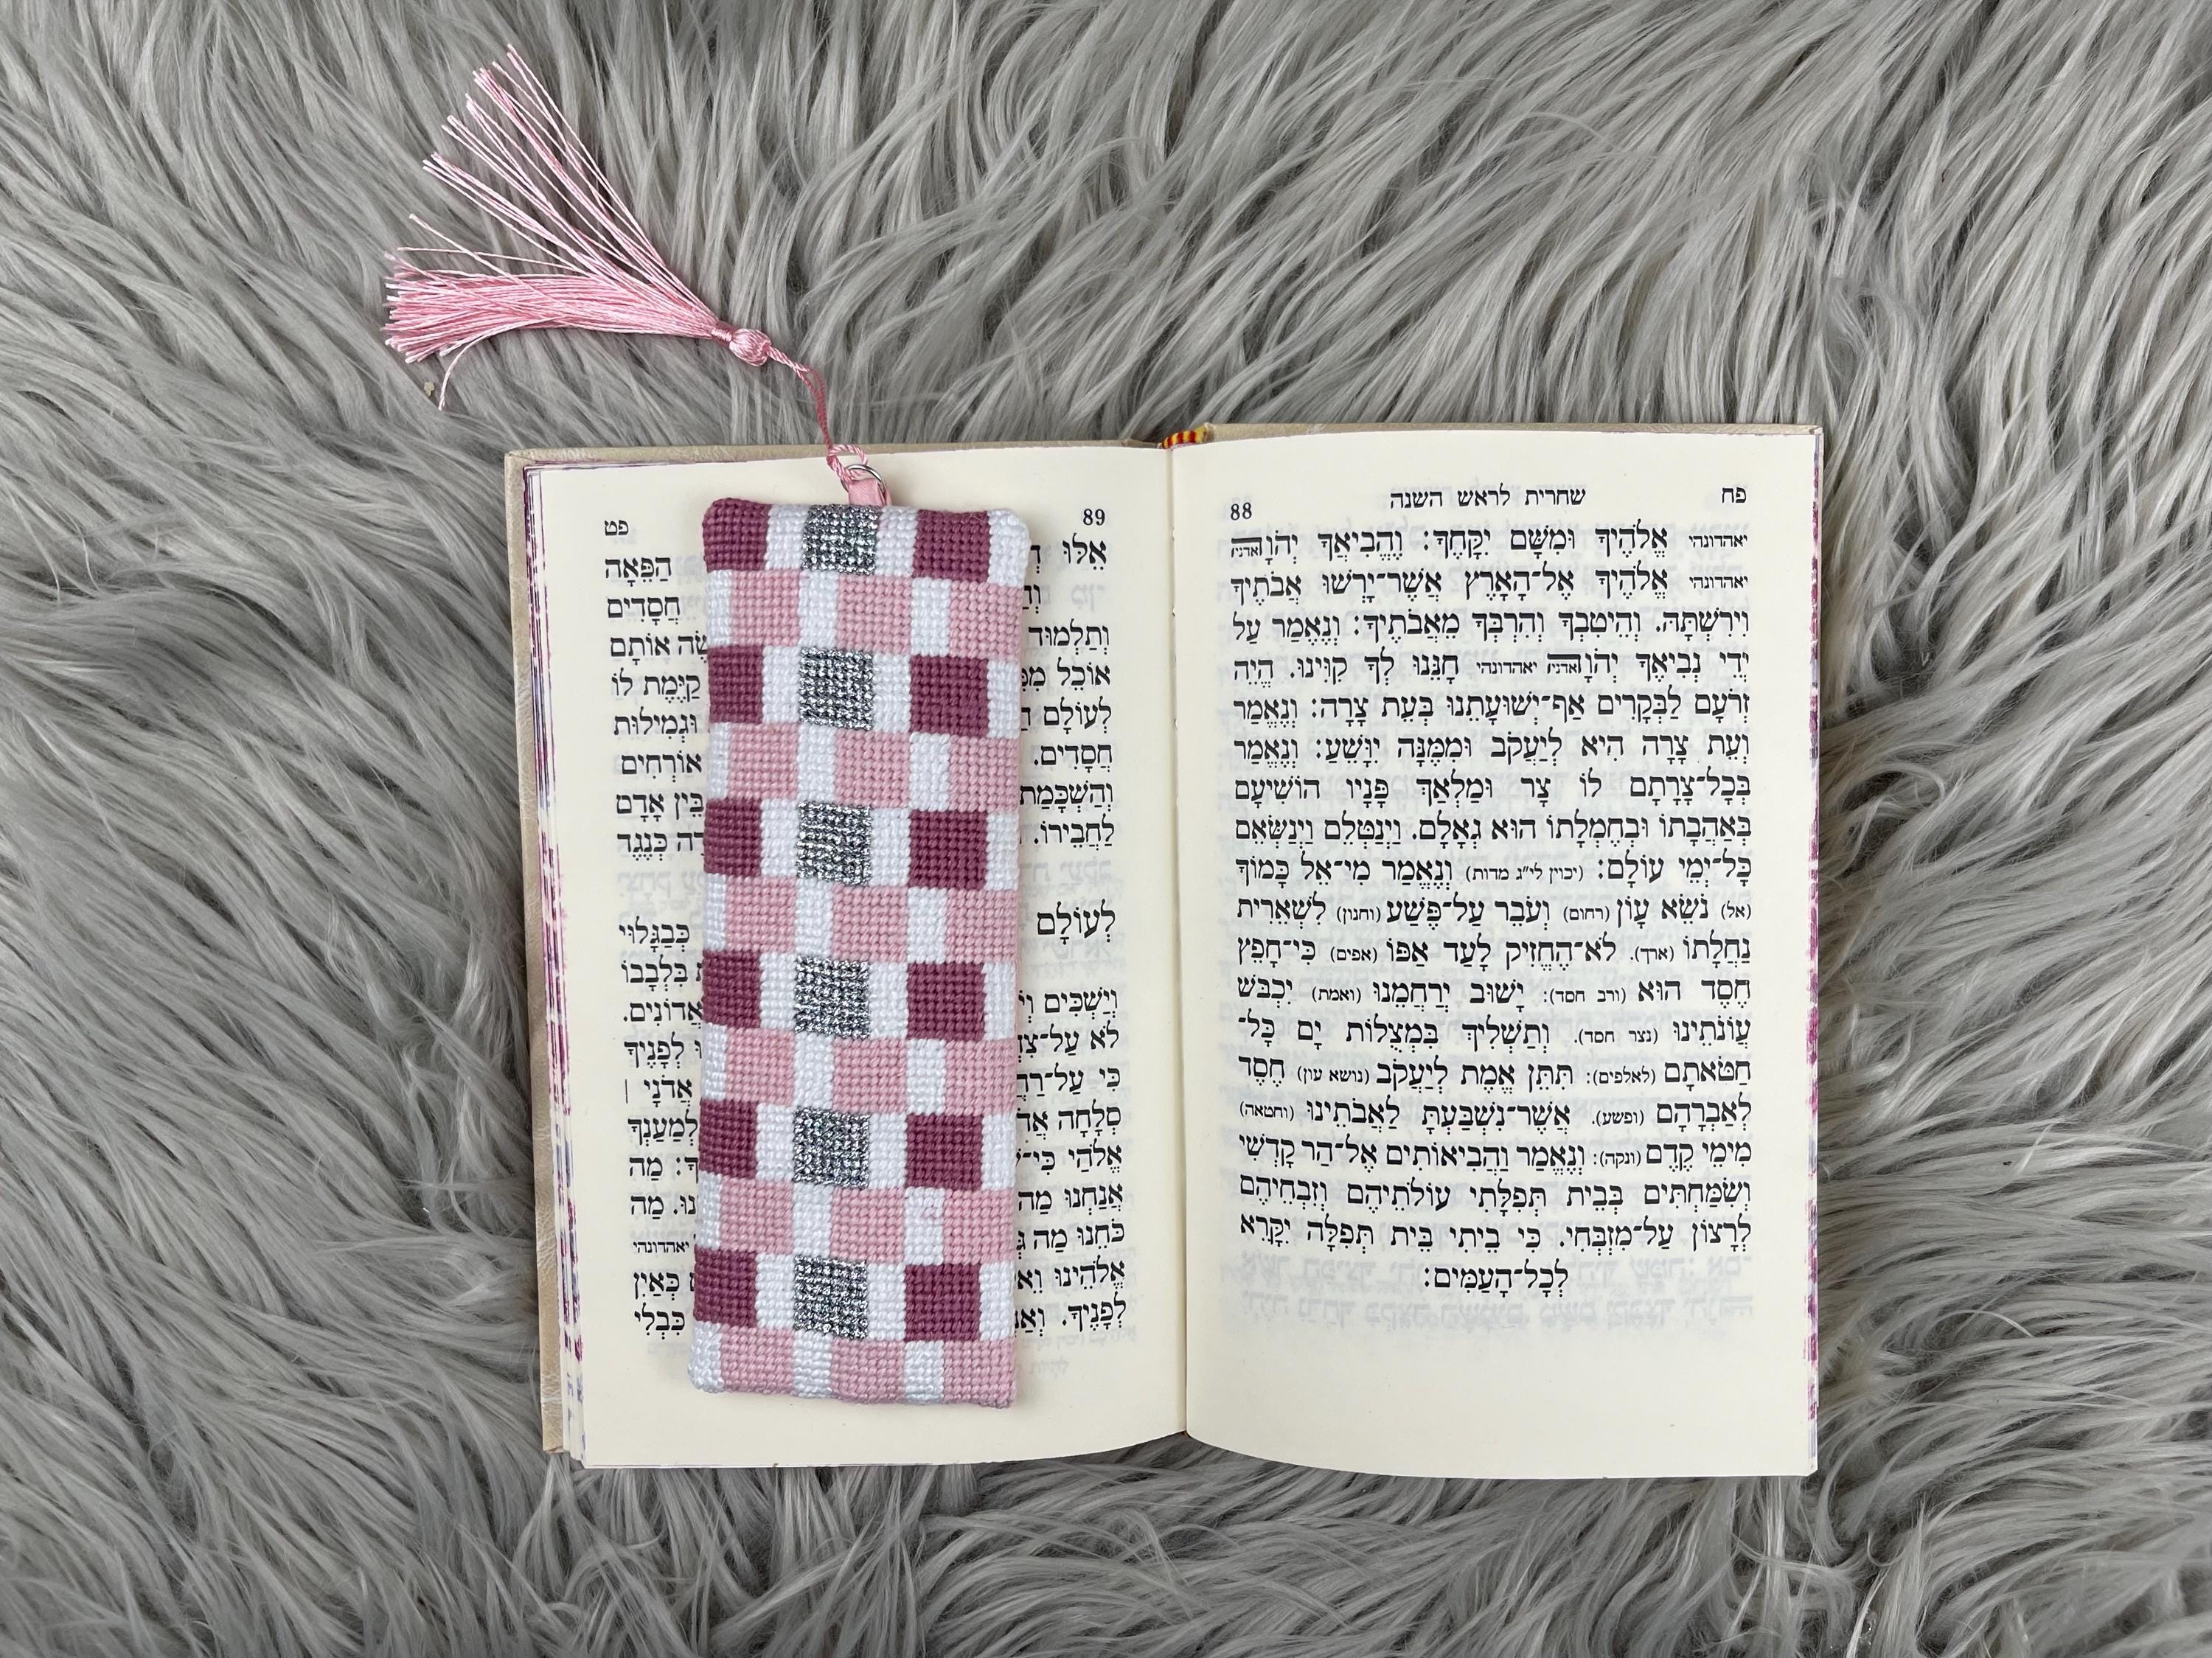 פח שחרית לראש השנה 88
יאהדונהי אֱלֹהֶיךָ וּמִשָּׁם יִקָּחֶךָ: וֶהֱבִיאֲךָ יְהֹוָה אדני
יאהדונהי אֱלֹהֶיךָ אֶל־הָאָרֶץ אֲשֶׁר־יָרְשׁוּ אֲבֹתֶיךָ
וִירִשְׁתָּהּ. וְהֵיטִבְךָ וְהִרְבְּךָ מֵאֲבֹתֶיךָ: וְנֶאֱמַר עַל
יְדֵי נְבִיאֶךָ יְהֹוָה אדני יאהדונהי חָנֵּנוּ לְךָ קִוִּינוּ. הֱיֵה
זְרֹעָם לַבְּקָרִים אַף־יְשׁוּעָתֵנוּ בְּעֵת צָרָה: וְנֶאֱמַר
וְעֵת צָרָה הִיא לְיַעֲקֹב וּמִמֶּנָּה יִוָּשֵׁעַ: וְנֶאֱמַר
בְּכָל־צָרָתָם לוֹ צָר וּמַלְאַךְ פָּנָיו הוֹשִׁיעָם
בְּאַהֲבָתוֹ וּבְחֶמְלָתוֹ הוּא גְאָלָם. וַיְנַטְּלֵם וַיְנַשְּׂאֵם
כָּל־יְמֵי עוֹלָם: (יכוין לי״ג מדות) וְנֶאֱמַר מִי־אֵל כָּמוֹךָ
(אל) נֹשֵׂא עָוֹן (רחום) וְעֹבֵר עַל־פֶּשַׁע (וחנון) לִשְׁאֵרִית
נַחֲלָתוֹ (ארך). לֹא־הֶחֱזִיק לָעַד אַפּוֹ (אפים) כִּי־חָפֵץ
חֶסֶד הוּא (ורב חסד): יָשׁוּב יְרַחֲמֵנוּ (ואמת) יִכְבֹּשׁ
עֲוֹנֹתֵינוּ (נצר חסד). וְתַשְׁלִיךְ בִּמְצֻלוֹת יָם כָּל־
חַטֹּאתָם (לאלפים): תִּתֵּן אֱמֶת לְיַעֲקֹב (נושא עון) חֶסֶד
לְאַבְרָהָם (ופשע). אֲשֶׁר־נִשְׁבַּעְתָּ לַאֲבֹתֵינוּ (וחטאה)
מִימֵי קֶדֶם (ונקה): וְנֶאֱמַר וַהֲבִיאוֹתִים אֶל־הַר קָדְשִׁי
וְשִׂמַּחְתִּים בְּבֵית תְּפִלָּתִי עוֹלֹתֵיהֶם וְזִבְחֵיהֶם
לְרָצוֹן עַל־מִזְבְּחִי. כִּי בֵיתִי בֵּית תְּפִלָּה יִקָּרֵא
לְכָל־הָעַמִּים:
89 פט
אֵלּוּ הַפֵּאָה
חֲסָדִים
וְתַלְמוּד אוֹתָם
אוֹכֵל קַיֶּמֶת לוֹ
לְעוֹלָם וּגְמִילוּת
חֲסָדִים. אוֹרְחִים
וְהַשְׁכָּמַת בֵּין אָדָם
לַחֲבֵירוֹ. כְּנֶגֶד
לְעוֹלָם כְּבַגָּלוּי
בִּלְבָבוֹ
וְיַשְׁכִּים
לֹא לְפָנֶיךָ
כִּי אֲדֹנָי |
סְלָחָה לְמַעַנְךָ
אֱלֹהַי מַה
אֲנַחְנוּ מַה מַה
כֹּחֵנוּ מַה יאהדונהי
אֱלֹהֵינוּ כְּאַיִן
לְפָנֶיךָ. כִּבְלִי